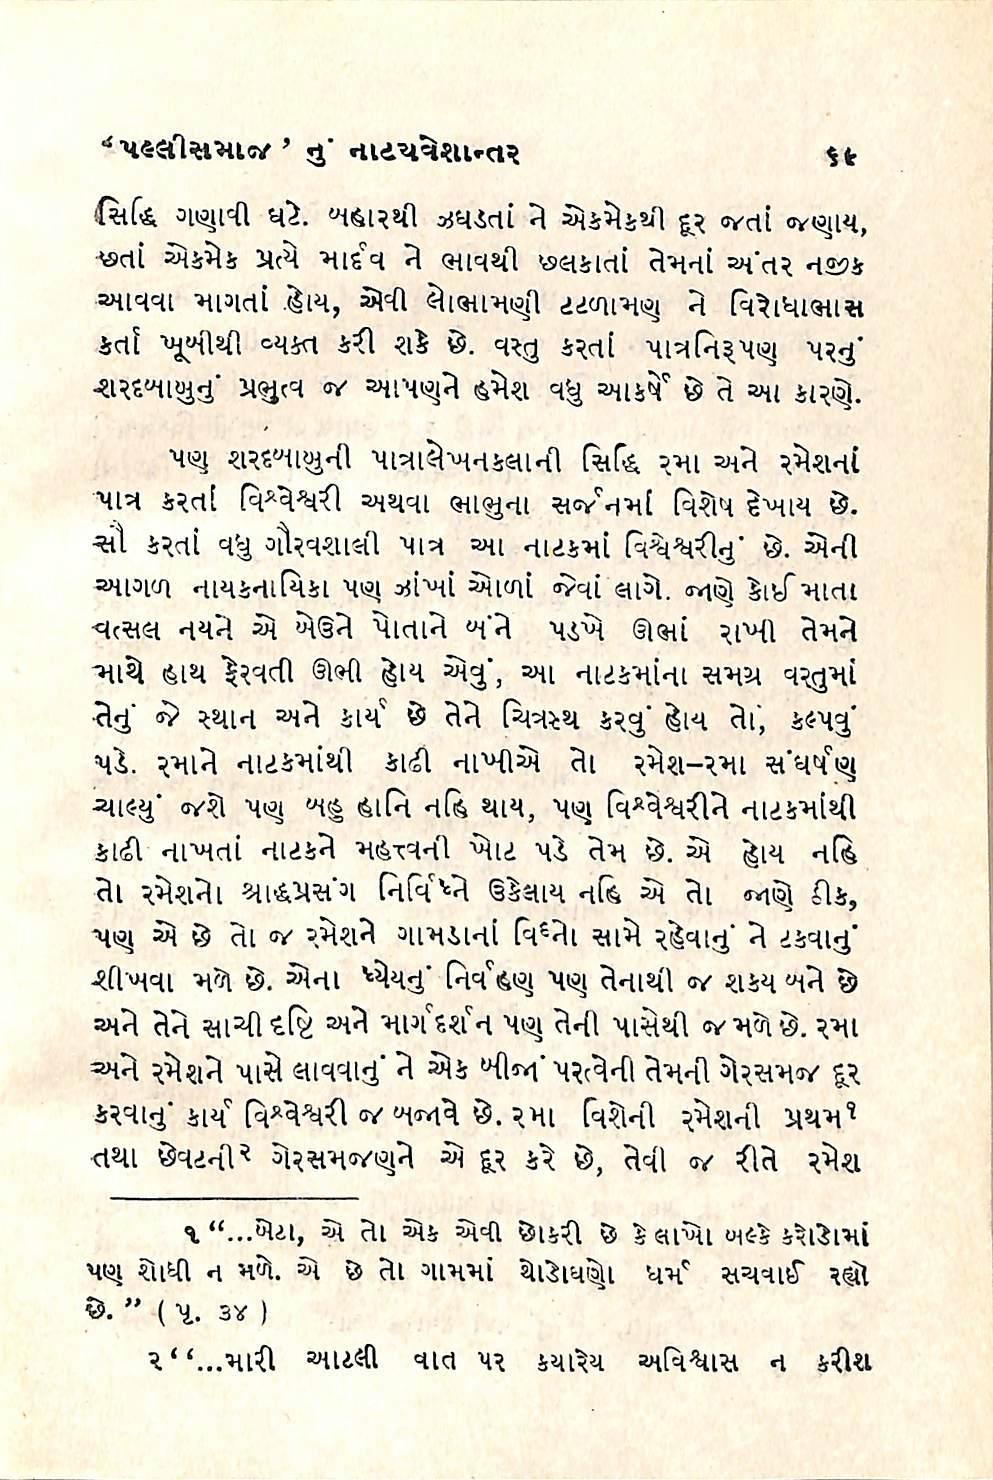 ‘પલ્લીસમાજ’ નું નાટ્યવેશાન્તર ૬૯
સિદ્ધિ ગણાવી ઘટે. બહારથી ઝઘડતાં ને એકમેકથી દૂર જતાં જણાય,
છતાં એકમેક પ્રત્યે માર્દવ ને ભાવથી છલકાતાં તેમનાં અંતર નજીક
આવવા માગતાં હોય, એવી લોભામણી ટટળામણ ને વિરોધાભાસ
કર્તા ખૂબીથી વ્યક્ત કરી શકે છે. વસ્તુ કરતાં પાત્રનિરૂપણ પરનું
શરદબાબુનું પ્રભુત્વ જ આપણને હમેશ વધુ આકર્ષે છે તે આ કારણે.
પણ શરદબાબુની પાત્રાલેખનકલાની સિદ્ધિ રમા અને રમેશનાં
પાત્ર કરતાં વિશ્વેશ્વરી અથવા ભાભુના સર્જનમાં વિશેષ દેખાય છે.
સૌ કરતાં વધુ ગૌરવશાલી પાત્ર આ નાટકમાં વિશ્વેશ્વરીનું છે. એની
આગળ નાયકનાયિકા પણ ઝાંખાં ઓળાં જેવાં લાગે. જાણે કોઈ માતા
વત્સલ નયને એ બેઉને પોતાને બંને પડખે ઊભાં રાખી તેમને
માથે હાથ ફેરવતી ઊભી હોય એવું, આ નાટકમાંના સમગ્ર વસ્તુમાં
તેનું જે સ્થાન અને કાર્ય છે તેને ચિત્રસ્થ કરવું હોય તો, કલ્પવું
પડે. રમાને નાટકમાંથી કાઢી નાખીએ તો રમેશ–રમા સંઘર્ષણ
ચાલ્યું જશે પણ બહુ હાનિ નહિ થાય, પણ વિશ્વેશ્વરીને નાટકમાંથી
કાઢી નાખતાં નાટકને મહત્ત્વની ખોટ પડે તેમ છે. એ હોય નહિ
તો રમેશનો શ્રાદ્ધપ્રસંગ નિર્વિઘ્ને ઉકેલાય નહિ એ તો જાણે ઠીક,
પણ એ છે તો જ રમેશને ગામડાનાં વિઘ્નો સામે રહેવાનું ને ટકવાનું
શીખવા મળે છે. એના ધ્યેયનું નિર્વહણ પણ તેનાથી જ શક્ય બને છે
અને તેને સાચી દૃષ્ટિ અને માર્ગદર્શન પણ તેની પાસેથી જ મળે છે. રમા
અને રમેશને પાસે લાવવાનું ને એક બીજાં પરત્વેની તેમની ગેરસમજ દૂર
કરવાનું કાર્ય વિશ્વેશ્વરી જ બજાવે છે. રમા વિશેની રમેશની પ્રથમ૧
તથા છેવટની૨ ગેરસમજણને એ દૂર કરે છે, તેવી જ રીતે રમેશ
૧ “...બેટા, એ તો એક એવી છોકરી છે કે લાખો બલ્કે કરોડોમાં
પણ શોધી ન મળે. એ છે તો ગામમાં થોડોઘણો ધર્મ સચવાઈ રહ્યો
છે.” ( પૃ. ૩૪ )
૨‘‘...મારી આટલી વાત પર કયારેય અવિશ્વાસ ન કરીશ